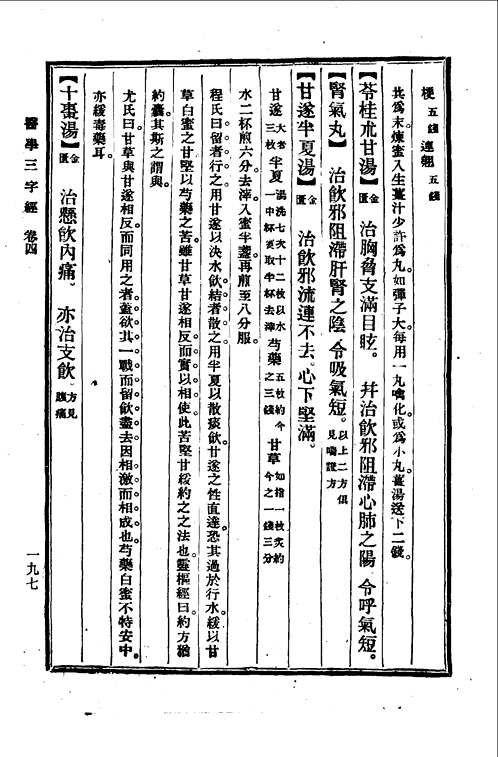 梗五錢連翹五錢
共爲末煉蜜入生薑汁少許爲丸如彈子大每用一丸噙化或爲小丸薑湯送下二錢。
【苓桂朮甘湯】金匱 治胸脅支滿目眩。幷治飲邪阻滯心肺之陽令呼氣短。
【腎氣丸】 治飲邪阻滯肝腎之陰令吸氣短。以上二方俱見喘證方
【甘遂半夏湯】金匱 治飲邪流連不去。心下堅滿。
甘遂大者三枚半夏湯洗七次十二枚以水一中杯煎取半杯去滓芍藥五枚約今之三錢甘草如指一枚炙約今之一錢三分
水二杯煎六分去滓入蜜半盞再煎至八分服。
程氏曰留者行之用甘遂以決水飲結者散之用半夏以散痰飲甘遂之性直達恐其過於行水緩以甘
草白蜜之甘堅以芍藥之苦雖甘草甘遂相反而實以相使此苦堅甘緩約之之法也靈樞經曰約方猶
約囊其斯之謂與。
尤氏曰甘草與甘遂相反而同用之者蓋欲其一戰而留飲盡去因相激而相成也芍藥白蜜不特安中。
亦緩毒藥耳。
【十棗湯】金匱 治懸飲內痛。亦治支飲。方見腹痛
醫學三字經 卷四
一九七